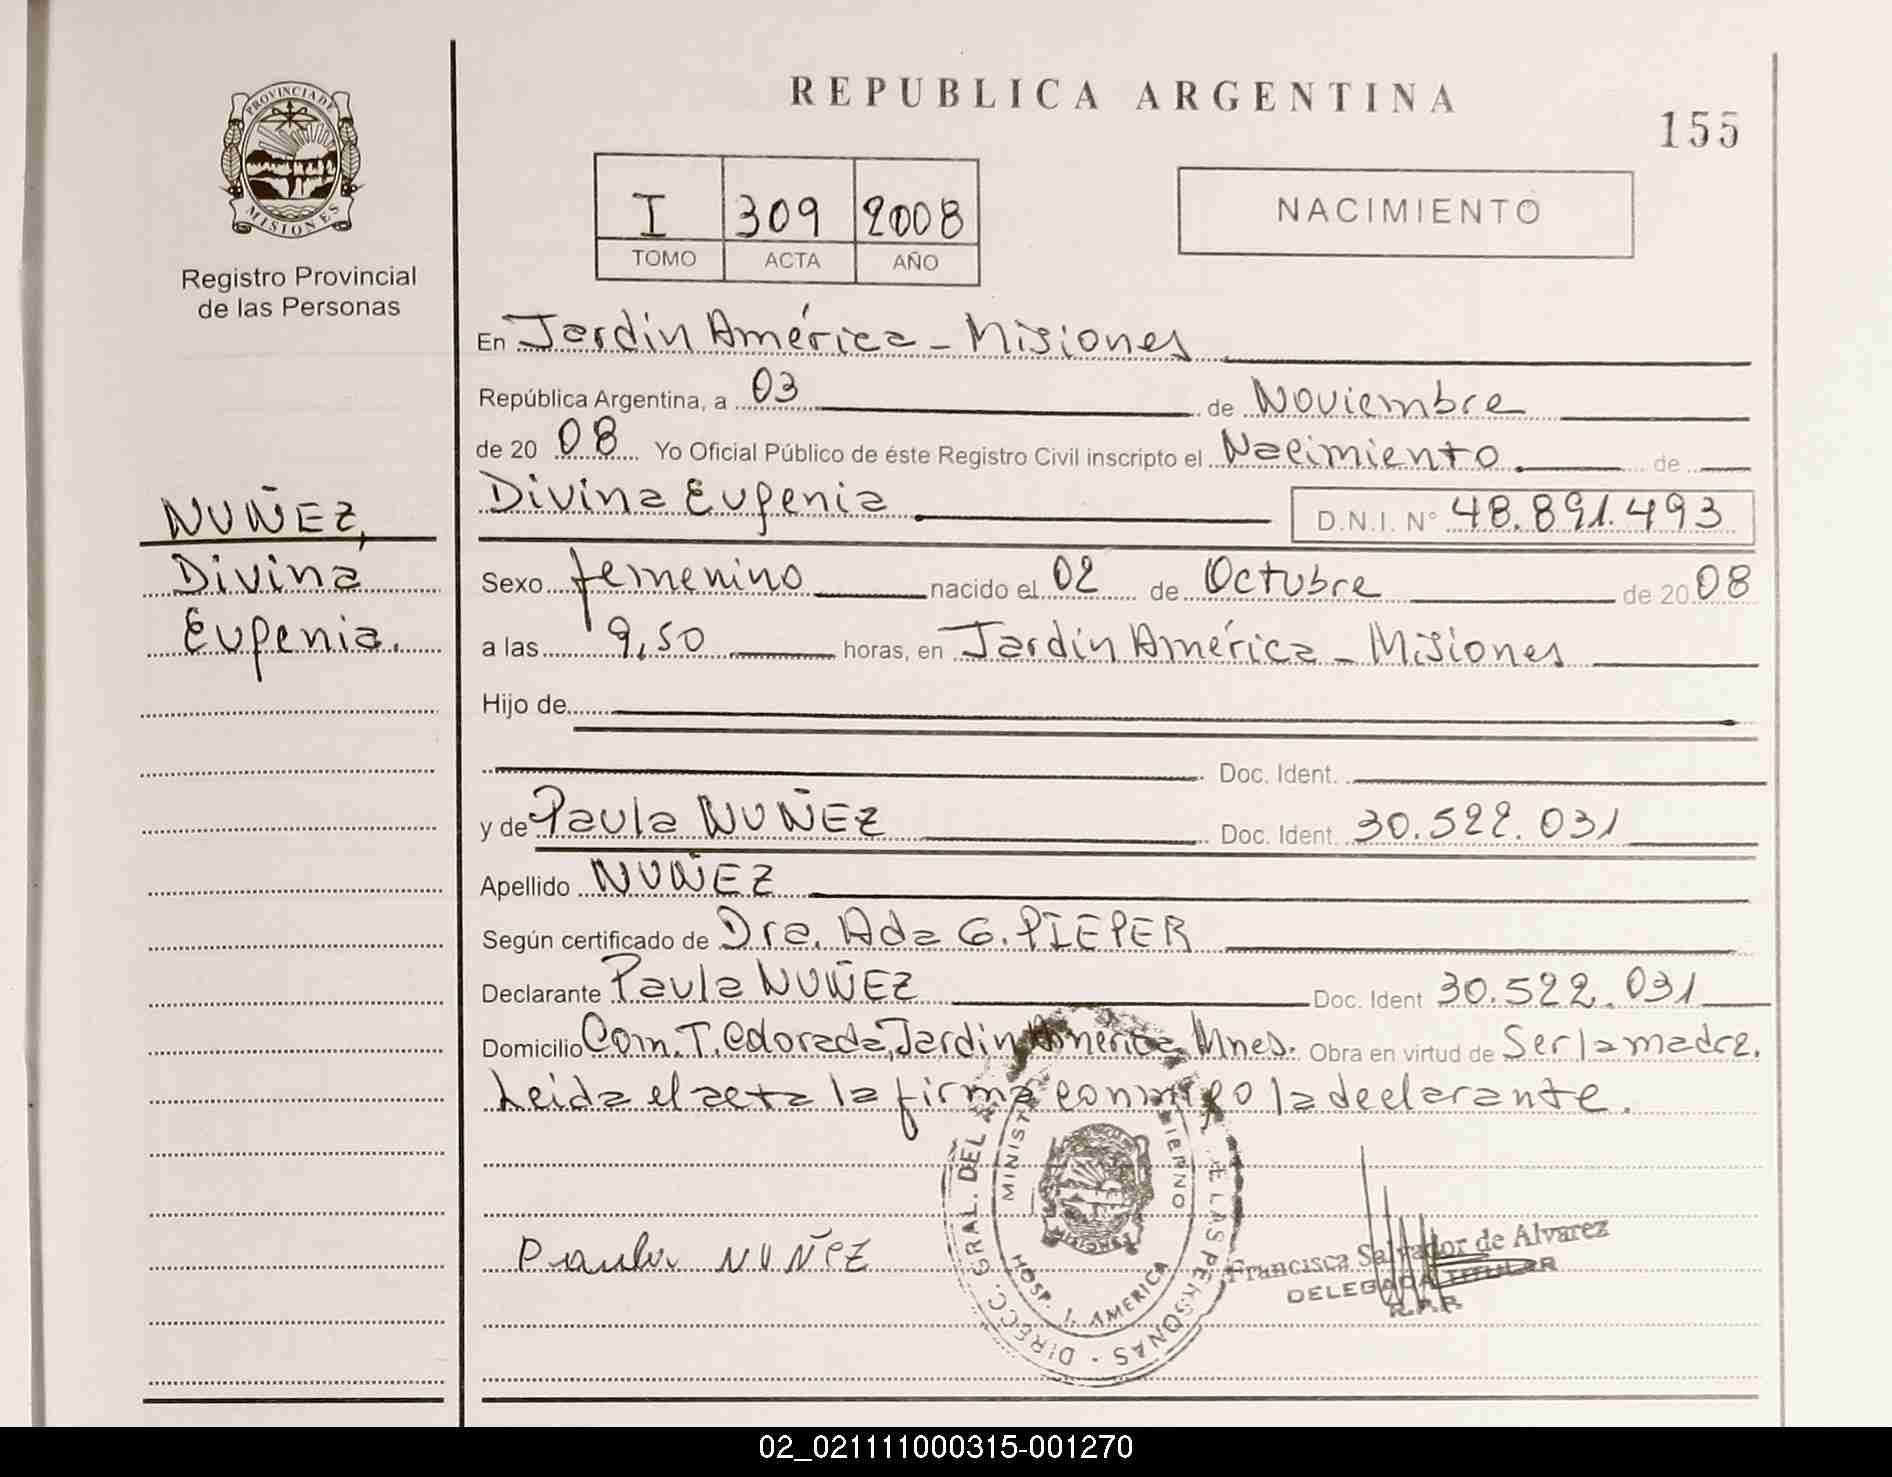 PROVINCIA DE
MISIONES
Registro Provincial
de las Personas
NUÑEZ,
Divina
Eugenia.
REPUBLICA ARGENTINA
155
I 309 2008
TOMO ACTA AÑO
NACIMIENTO
En Jardín América - Misiones
República Argentina, a 03 de Noviembre
de 20 08 Yo Oficial Público de éste Registro Civil inscripto el Nacimiento de
Divina Eugenia D.N.I. Nº 48.891.493
Sexo femenino nacido el 02 de Octubre de 20 08
a las 9,50 horas, en Jardín América - Misiones
Hijo de
Doc. Ident.
y de Paula NUÑEZ Doc. Ident. 30.522.031
Apellido NUÑEZ
Según certificado de Dra. Ada G. PIEPER
Declarante Paula NUÑEZ Doc. Ident 30.522.031
Domicilio Com. T. Jardín América, Mnes. Obra en virtud de Ser la madre.
Leida el acta la firma conmigo la declarante.
DIRECC. GRAL. DEL E LAS PERSONAS
MINIST IERNO
HOSP. J. AMERICA
Paula NUÑEZ
Francisca Salvador de Alvarez
DELEGADA TITULAR
R.P.P.
02_021111000315-001270